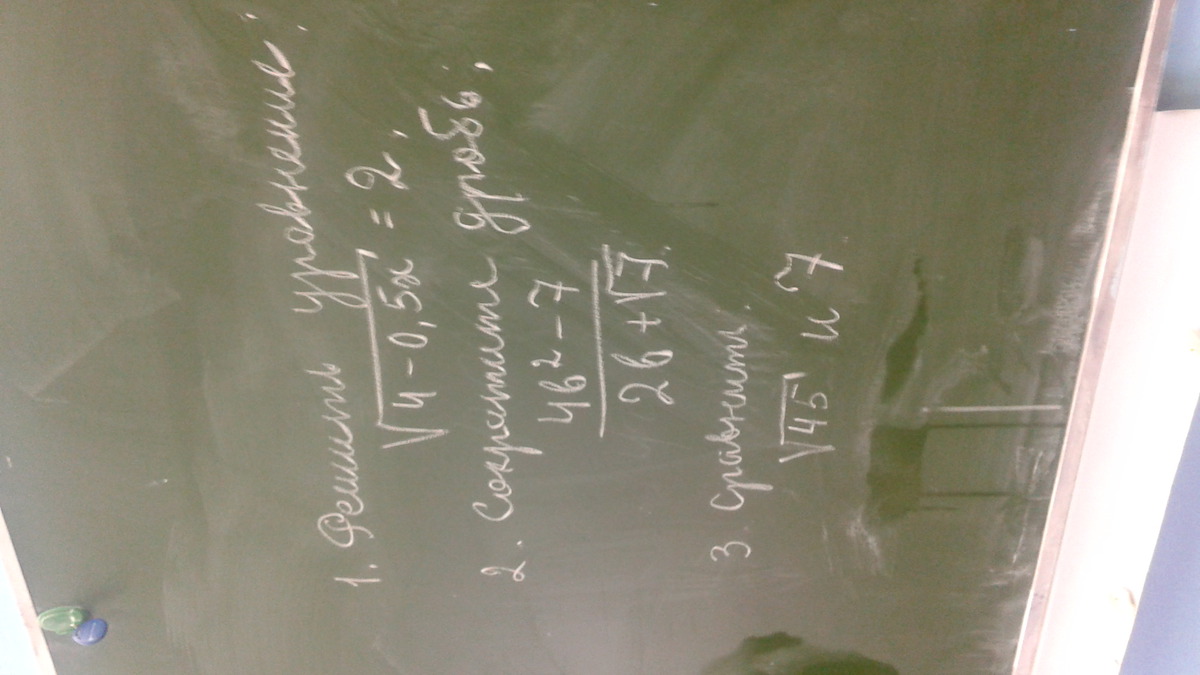 1. Решить уравнения.
√4-0,5x = 2,
2. Сократите дробь,
4b²-7
2b+√7.
3 сравнить.
√45 и 7